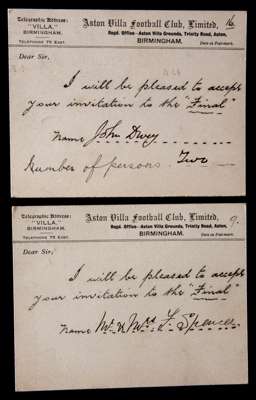 Telegraphic Address:
"VILLA,"
BIRMINGHAM.
TELEPHONE 75 EAST.
Aston Villa Football Club, Limited,
16
Regd. Office - Aston Villa Grounds, Trinity Road, Aston,
BIRMINGHAM.
Date as Postmark.
Dear Sir,
I will be pleased to accept
your invitation to the "Final"
Name John Devey
Number of persons Two
Telegraphic Address:
"VILLA,"
BIRMINGHAM.
TELEPHONE 75 EAST.
Aston Villa Football Club, Limited,
9.
Regd. Office - Aston Villa Grounds, Trinity Road, Aston,
BIRMINGHAM.
Date as Postmark.
Dear Sir,
I will be pleased to accept
your invitation to the "Final"
Name Mr & Mrs F. Spencer